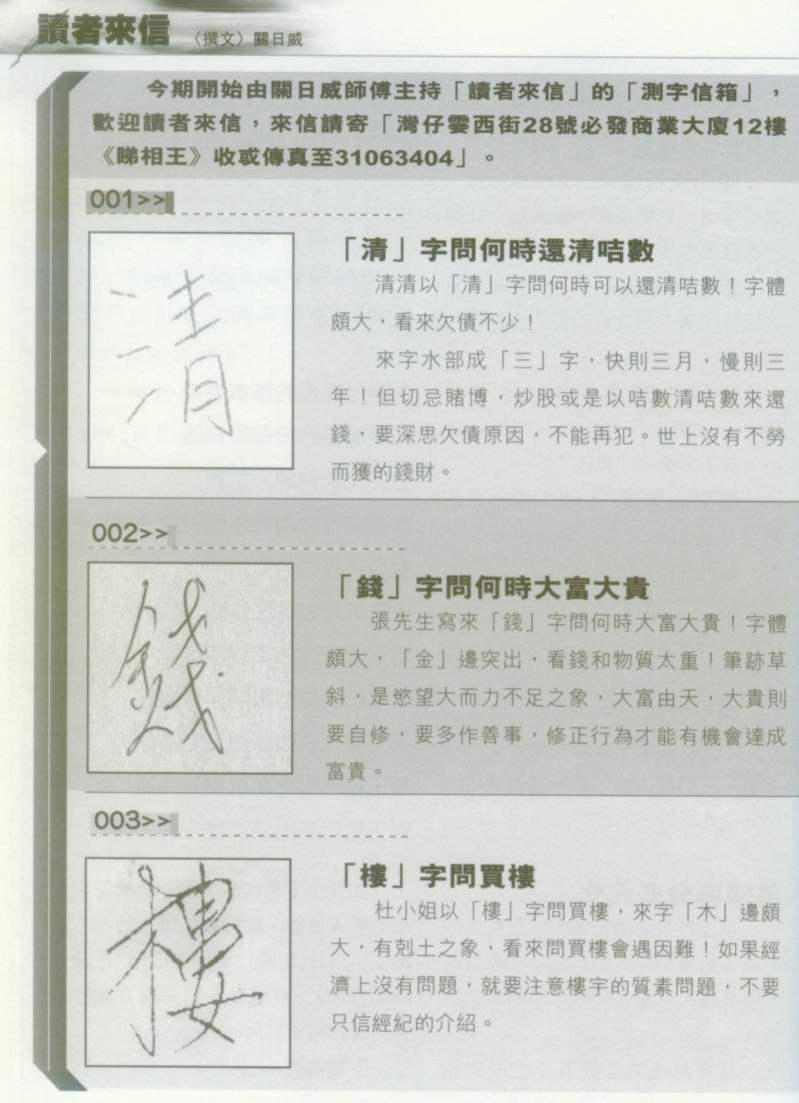 讀者來信 〈撰文〉關日威
今期開始由關日威師傅主持「讀者來信」的「測字信箱」，
歡迎讀者來信，來信請寄「灣仔霎西街28號必發商業大廈12樓
《睇相王》收或傳真至31063404」。
001>>
清
「清」字問何時還清咭數
清清以「清」字問何時可以還清咭數！字體
頗大，看來欠債不少！
來字水部成「三」字，快則三月，慢則三
年！但切忌賭博，炒股或是以咭數清咭數來還
錢，要深思欠債原因，不能再犯。世上沒有不勞
而獲的錢財。
002>>
錢
「錢」字問何時大富大貴
張先生寫來「錢」字問何時大富大貴！字體
頗大，「金」邊突出，看錢和物質太重！筆跡草
斜，是慾望大而力不足之象，大富由天，大貴則
要自修，要多作善事，修正行為才能有機會達成
富貴。
003>>
樓
「樓」字問買樓
杜小姐以「樓」字問買樓，來字「木」邊頗
大，有剋土之象，看來問買樓會遇因難！如果經
濟上沒有問題，就要注意樓宇的質素問題，不要
只信經紀的介紹。